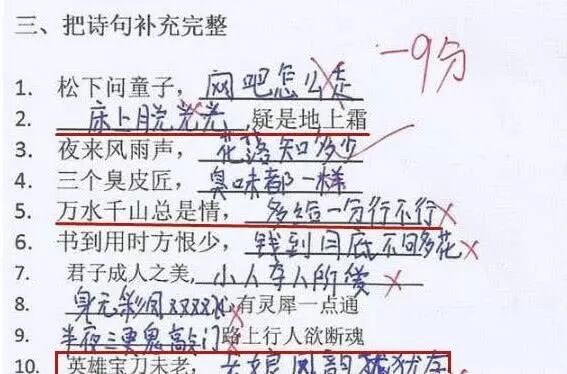 三、把诗句补充完整
-9分
1. 松下问童子，网吧怎么走
2. 床上脱光光,疑是地上霜
3. 夜来风雨声，花落知多少
4. 三个臭皮匠，臭味都一样
5. 万水千山总是情，多给一分行不行
6. 书到用时方恨少，钱到月底不回多花
7. 君子成人之美,小人夺人所爱
8. 身无彩凤XXXX,心有灵犀一点通
9. 半夜三更鬼敲门路上行人欲断魂
10. 英雄宝刀未老，大娘风韵犹存